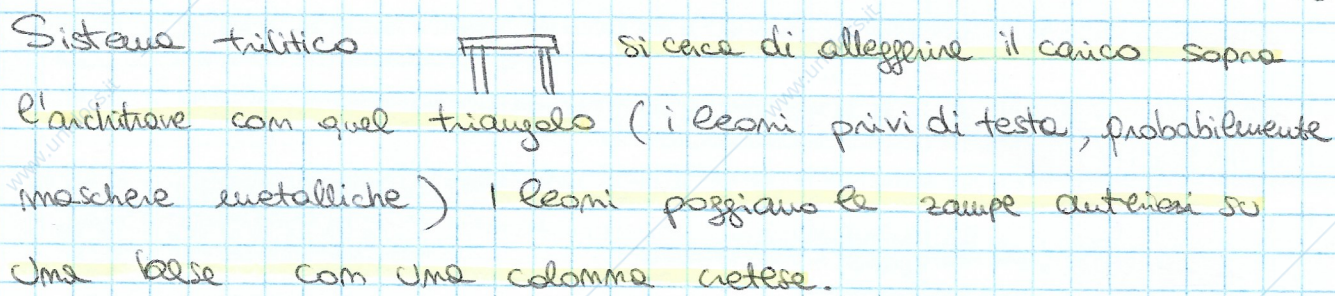 Sistema trilitico si cerca di alleggerire il carico sopra
l'architrave con quel triangolo (i leoni privi di testa, probabilmente
maschere metalliche) I leoni poggiano le zampe anteriori su
una base con una colonna cretese.